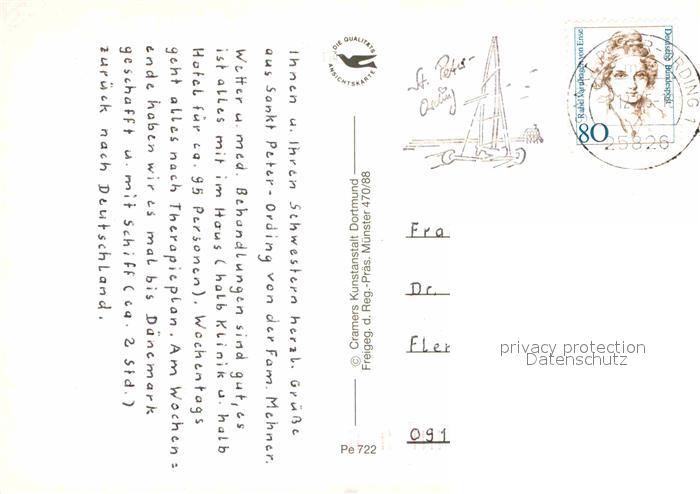 Ihnen u. Ihren Schwestern herzl. Grüße
aus Sankt Peter-Ording von der Fam. Mehner.
Wetter u. med. Behandlungen sind gut, es
ist alles mit im Haus (halb Klinik u. halb
Hotel für ca. 95 Personen). Wochentags
geht alles nach Therapieplan. Am Wochen=
ende haben wir es mal bis Dänemark
geschafft u. mit Schiff (ca. 2 Std.)
zurück nach Deutschland.
DIE QUALITÄTS
ANSICHTSKARTE
© Cramers Kunstanstalt Dortmund
Freigeg. d. Reg.-Präs. Münster 470/88
Pe 722
St. Peter-
Ording
Deutsche Bundespost
Rahel Varnhagen von Ense
80
25826
Fra
Dr.
Fler
091
privacy protection
Datenschutz